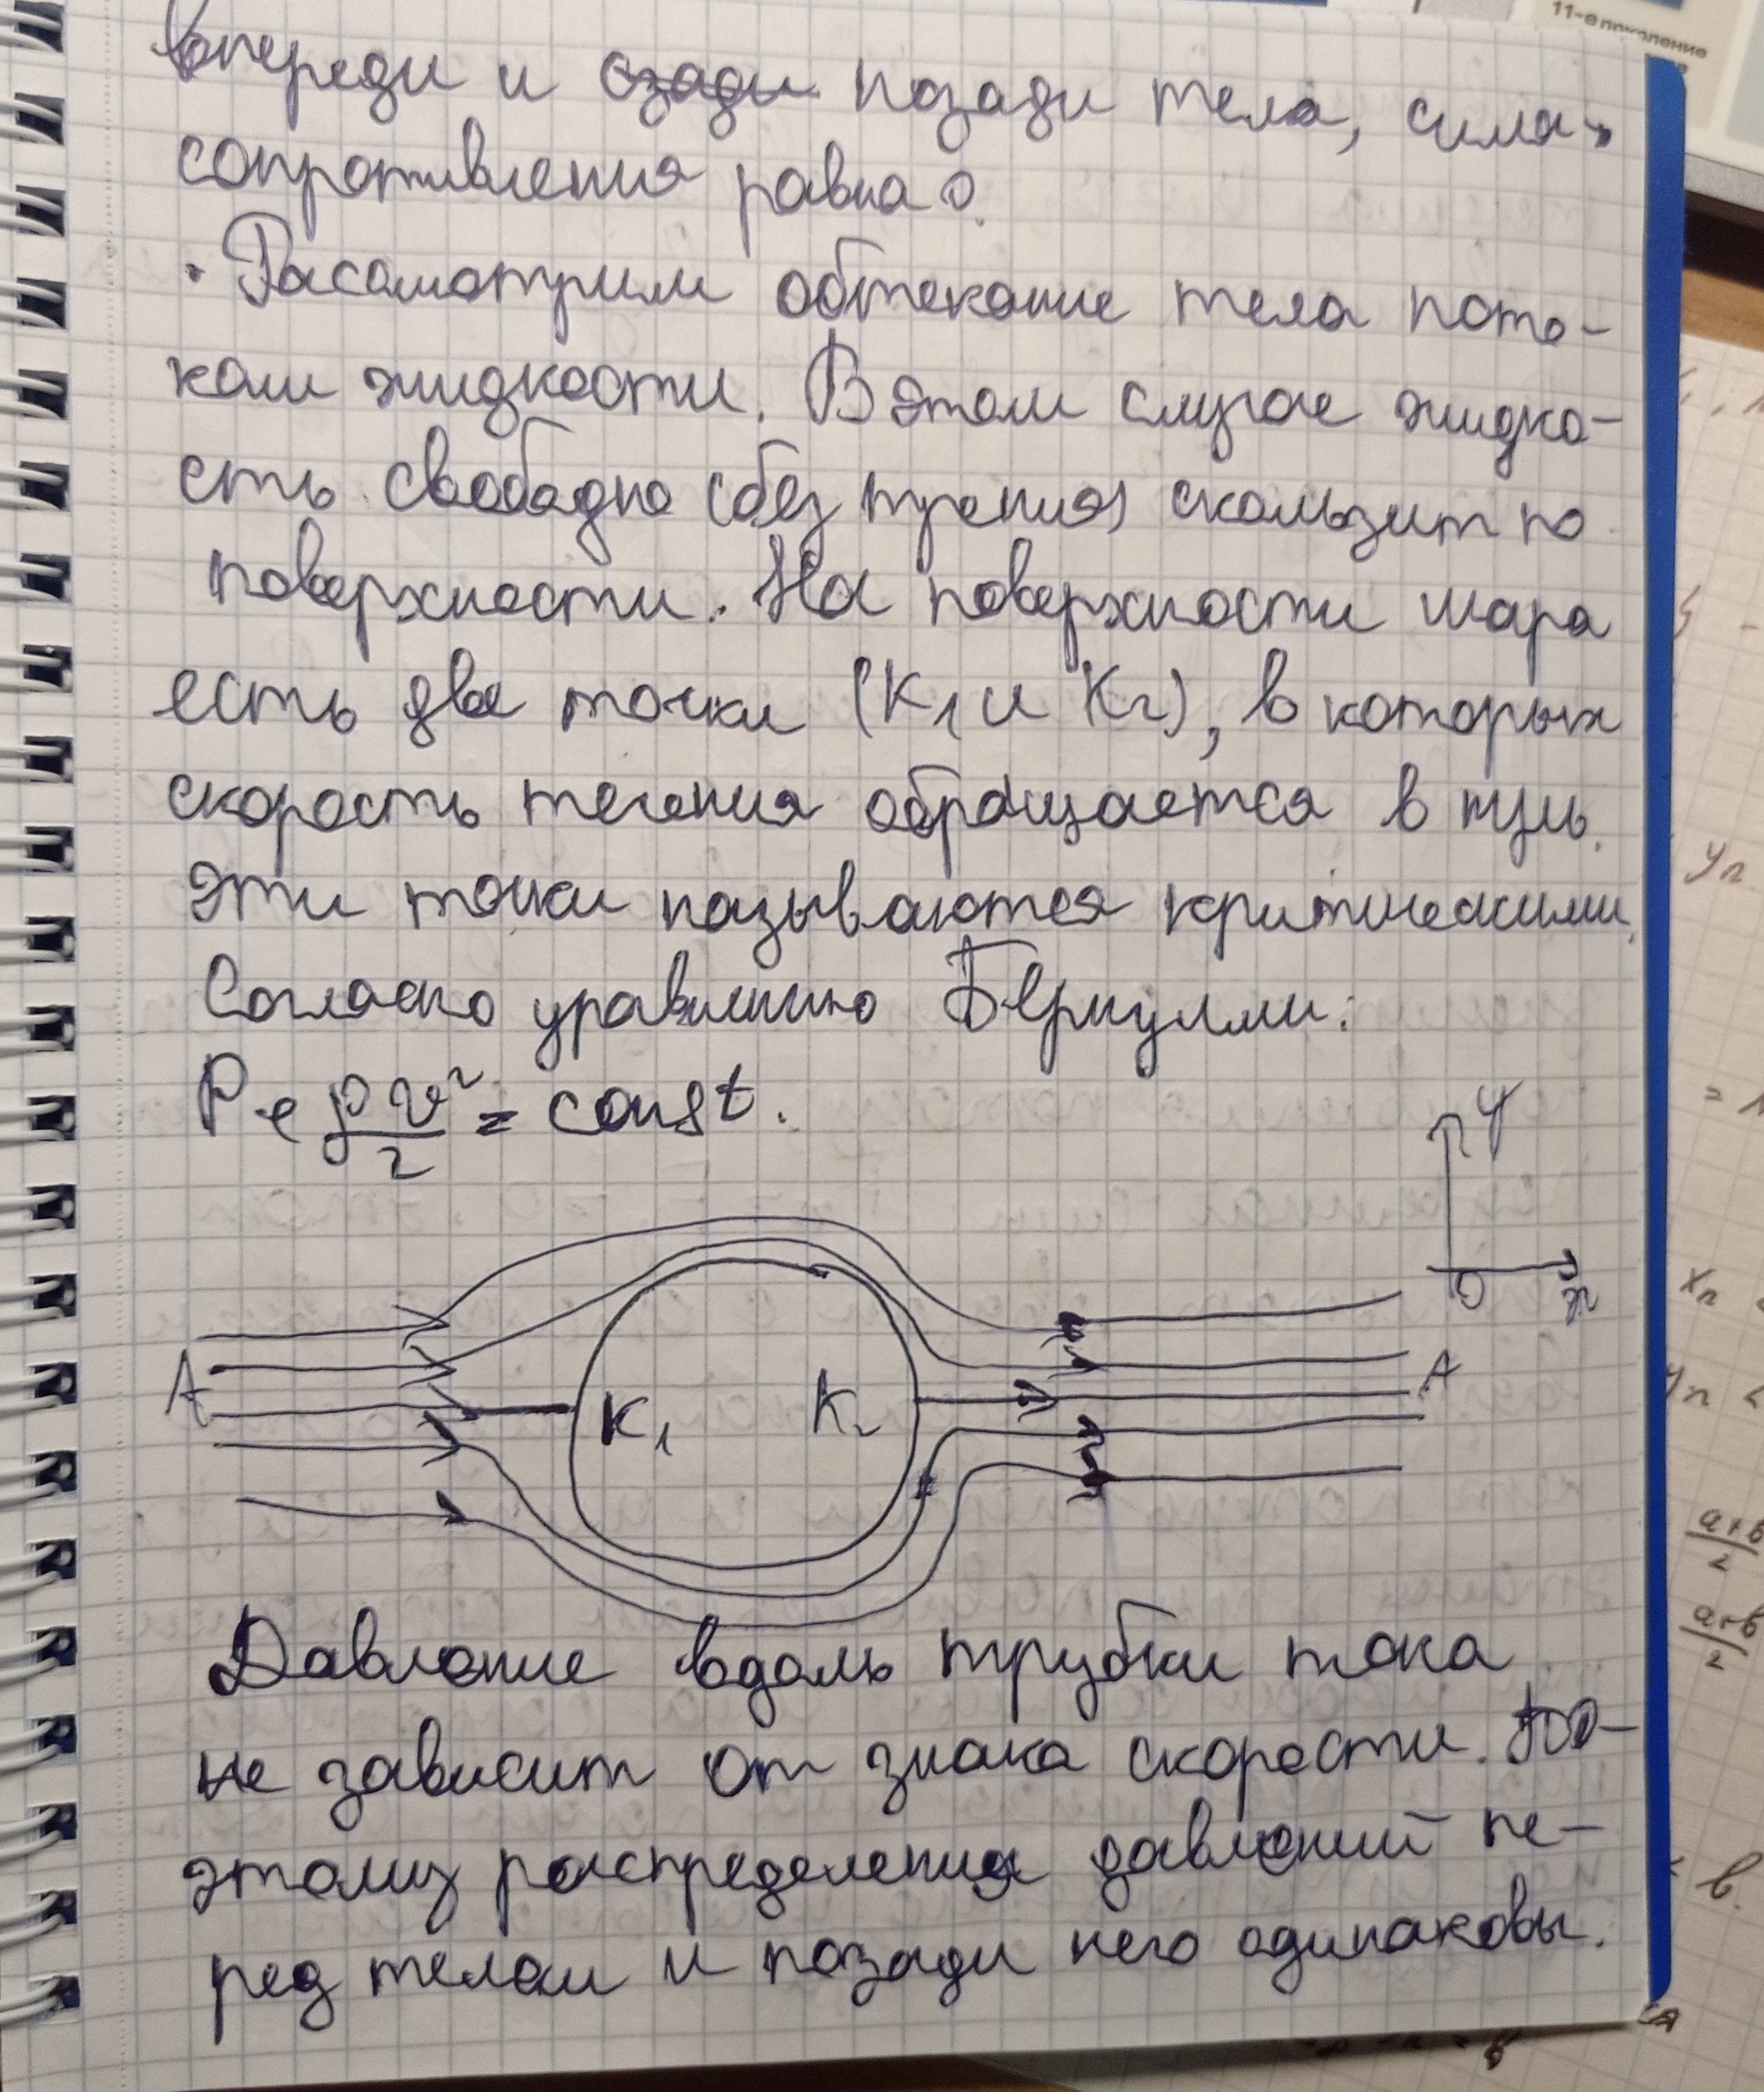 впереди и сзади позади тела, сила
сопротивления равна 0.
· Рассмотрим обтекание тела пото-
ком жидкости. В этом случае жидко-
сть свободно (без трения) скользит по
поверхности. На поверхности шара
есть две точки (K1 и K2), в которых
скорость течения обращается в нуль.
Эти точки называются критическими.
Согласно уравнению Бернулли:
P + ρv²/2 = const.
y
0
x
A
K1
K2
A
Давление вдоль трубки тока
не зависит от знака скорости. По-
этому распределения давлений пе-
ред телом и позади него одинаковы.
11-е поколение
yn
= 1
xn
yn <
a+b
2
a+b
2
b.
ся